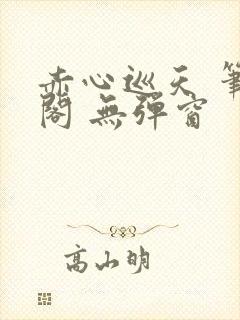 赤心巡天 筆
閣 無彈窗
高山明